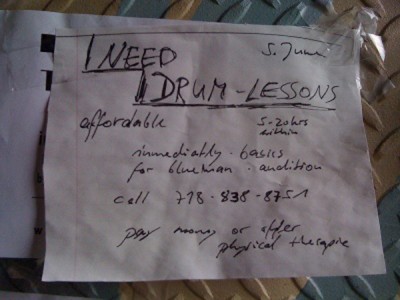 I NEED
5. June
DRUM-LESSONS
affordable
5-20 hrs
within
immediatly. basics
for blueman. audition
call 718-838-8751
pay money or offer
physical therapie